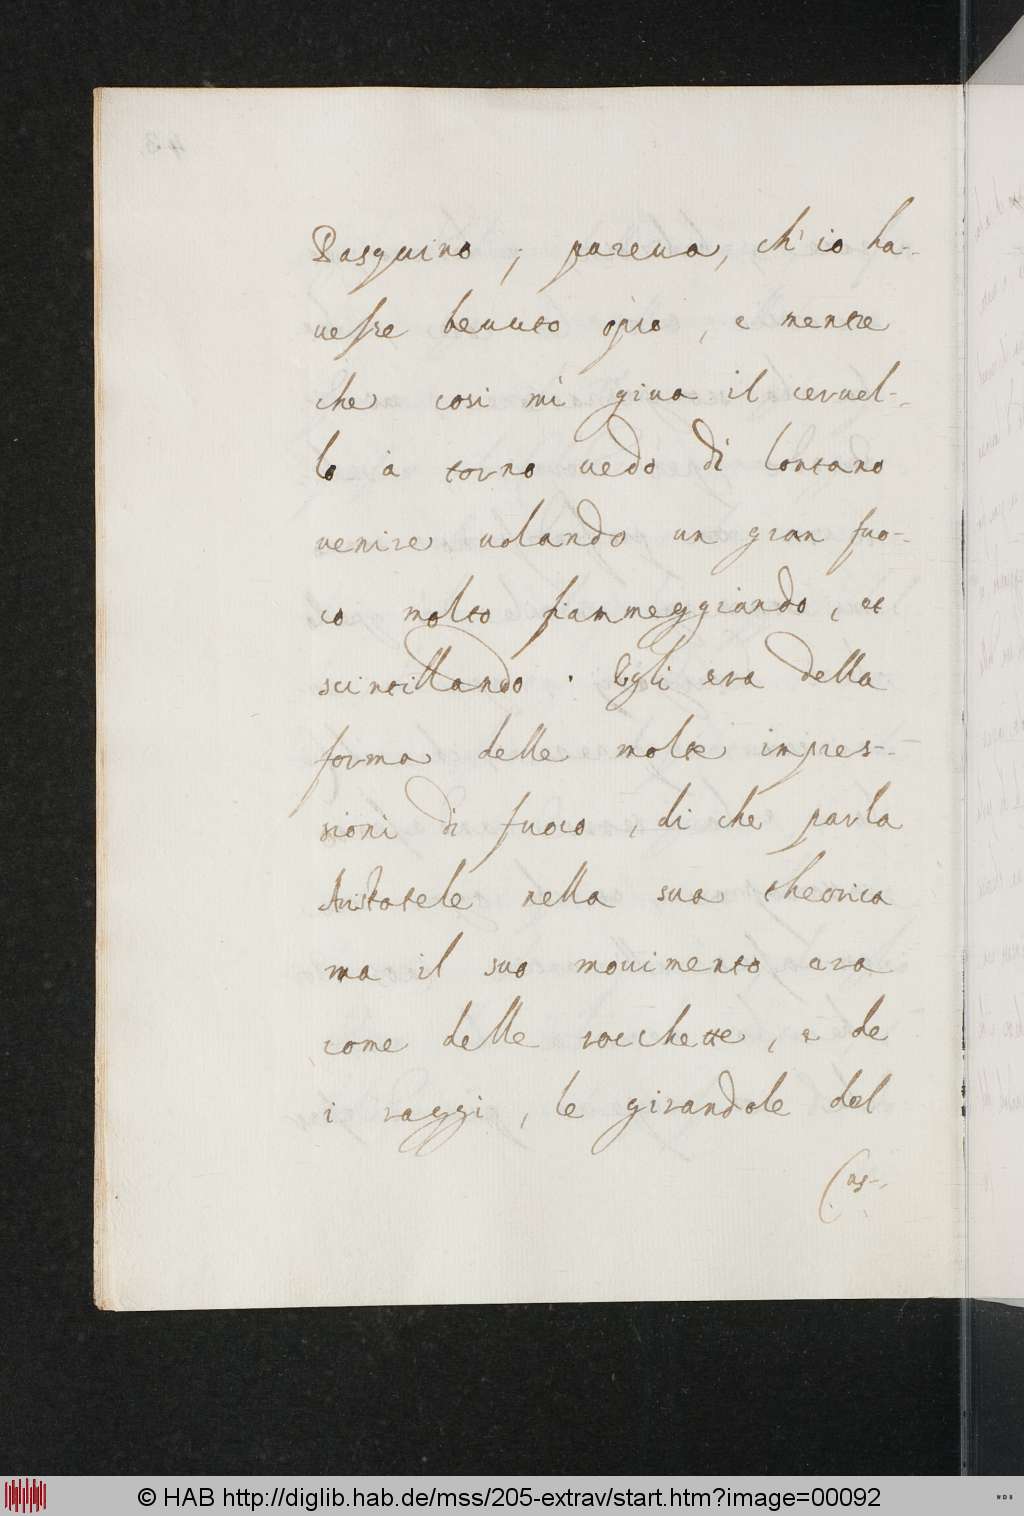 Pasquino ; pareua, ch' io ha-
uesse beuuto opio , e mentre
che cosi mi giua il ceruel-
lo à torno uedo di lontano
uenire uolando un gran fuo-
co molto fiammeggiando, et
scintillando . Egli era della
forma delle molte impres-
sioni di fuoco , di che parla
Aristotele nella sua theorica
ma il suo mouimento era
come delle rocchette , e de
i raggi , le girandole del
Cas-
© HAB http://diglib.hab.de/mss/205-extrav/start.htm?image=00092